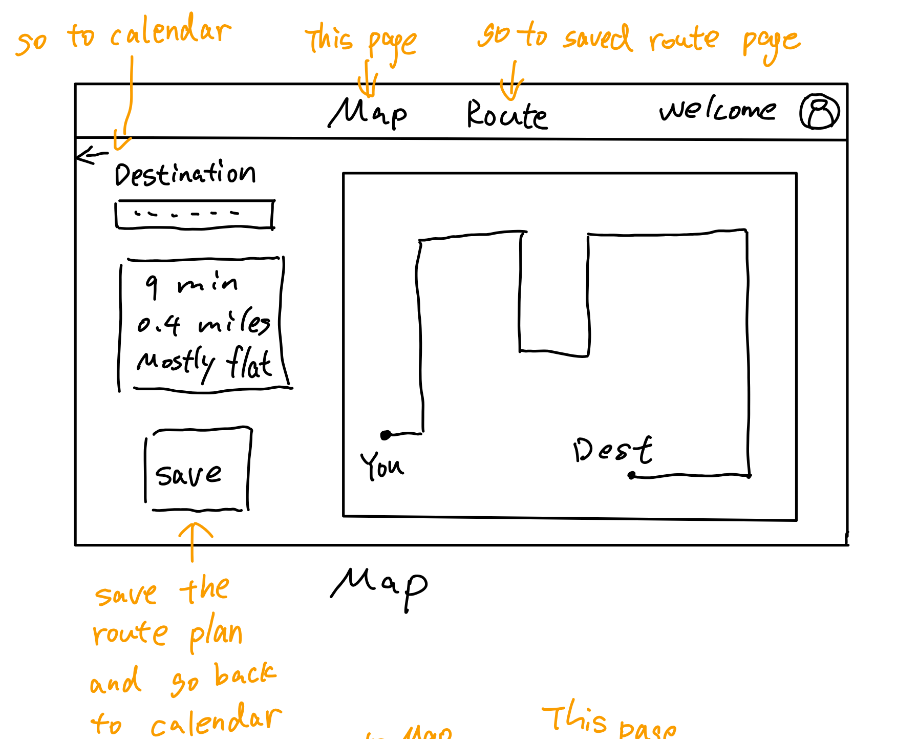 go to calendar
This page
go to saved route page
Map
Route
Welcome
Destination
9 min
0.4 miles
Mostly flat
You
Dest
save
Map
save the
route plan
and go back
to calendar
to Map
This page